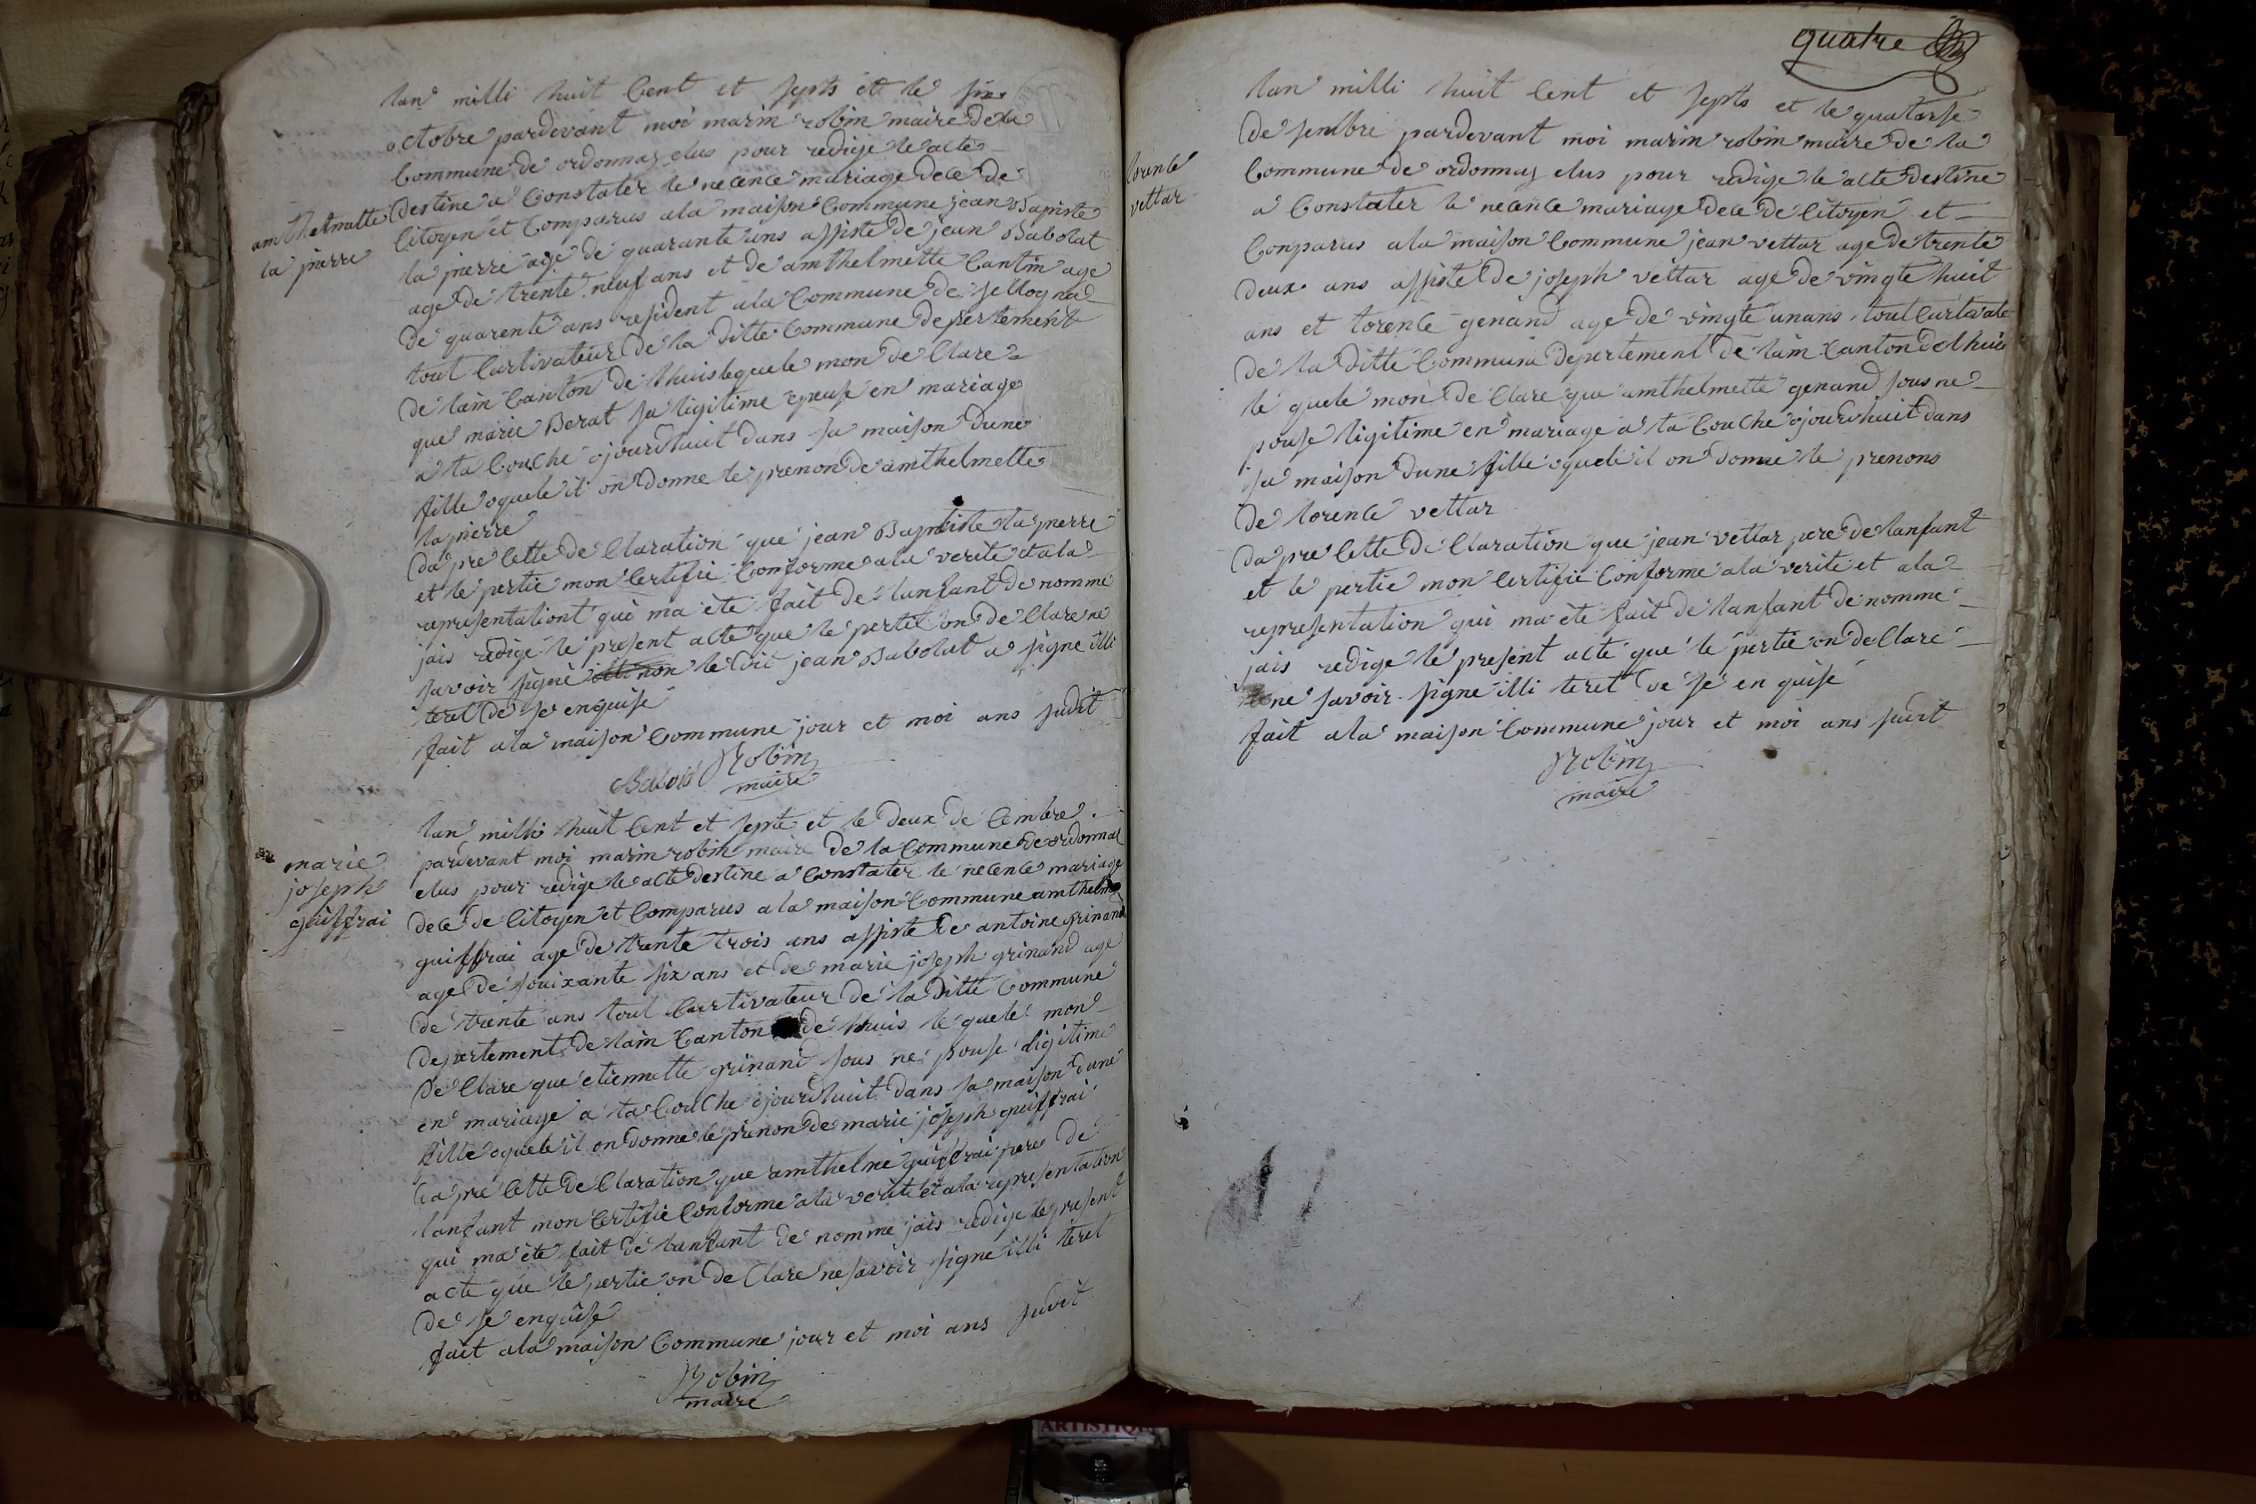 lan milli huit Cent et septs ett le six
octobre pardevant moi marin robin maire de la
Commune de ordonnaz elus pour redige le acte
amthelmette
la pierre
destine a Constater le necence mariage dece de
Citoyen et Comparus ala maison Commune jean Bapiste
la pierre age de quarante ans assiste de jean Babolat
age de trente neuf ans et de amthelmette Cantin age
de quarente ans resident ala Commune de sellognad
tout Curtivateur de la ditte Commune depertement
de lain Canton de lhuis lequele mon de Clare
que marie Berat sa ligitime epeuse en mariage
a ta Couche ojourdhuit dans sa maison dune
fille oquele it on donne le prenon de amthelmette
lapierre
da pre Cette de Claration que jean Baptiste la pierre
et le pertie mon Certifie Conforme ala verite et ala
representationt qui ma ete fait de lanfant de nomme
jais redige le present acte que le pertie on de Clare ne
savoir signe le dit jean Babolat a signe illi
teret de se enquise
fait ala maison Commune jour et moi ans sudit
Babola Robin
maire
marie
joseph
guiffrai
lan milli huit Cent et septe et le deux de Cembre
pardevant moi marin robin maire de la Commune de ordonnaz
elus pour redige le acte destine a Constater le necence mariage
dece de Citoyen et Comparus a la maison Commune amthelme
guiffrai age de trente trois ans assiste de antoine grinand
age de souixante six ans et de marie joseph grinand age
de trente ans tout Curtivateur de la ditte Commune
depertement de lain Canton de lhuis le quele mon
de Clare que etiennette grinand sous ne pouse ligitime
en mariage a ta Couche ojourdhuit dans sa maison dune
fille oquele il on donne le prenon de marie joseph guiffrai
da pre Cette de Claration que amthelme guiffrai pere de
lanfant mon Certifie Conforme ala verite et ala representation
qui ma ete fait de lanfant de nomme jais redige le present
acte que le pertie on de Clare ne savoir signe illi teret
de se enquise
fait ala maison Commune jour et moi ans sudit
Robin
maire
quatre
lorence
vettar
lan milli huit Cent et septs et le quatorse
de sembre pardevant moi marin robin maire de la
Commune de ordonnaz elus pour redige le acte destine
a Constater le necence mariage dece de Citoyen et
Conparus ala maison Commune jean vettar age de trente
deux ans assiste de joseph vettar age de vingte huit
ans et lorence genand age de vingte un ans tout Curtivate
de la ditte Commune depertement de lain Canton de lhuis
le quele mon de Clare que amthelmette genand sous ne
pouse ligitime en mariage a ta Couche ojourdhuit dans
sa maison dune fille oquele il on donne le prenons
de lorence vettar
da pre Cette de Claration que jean vettar pere de lanfant
et le pertie mon Certifie Conforme ala verite et ala
representation qui ma ete fait de lanfant de nomme
jais redige le present acte que le pertie on de Clare
ne savoir signe illi teret de se en quise
fait ala maison Commune jour et moi ans sudit
Robin
maire
ARTISTIQ